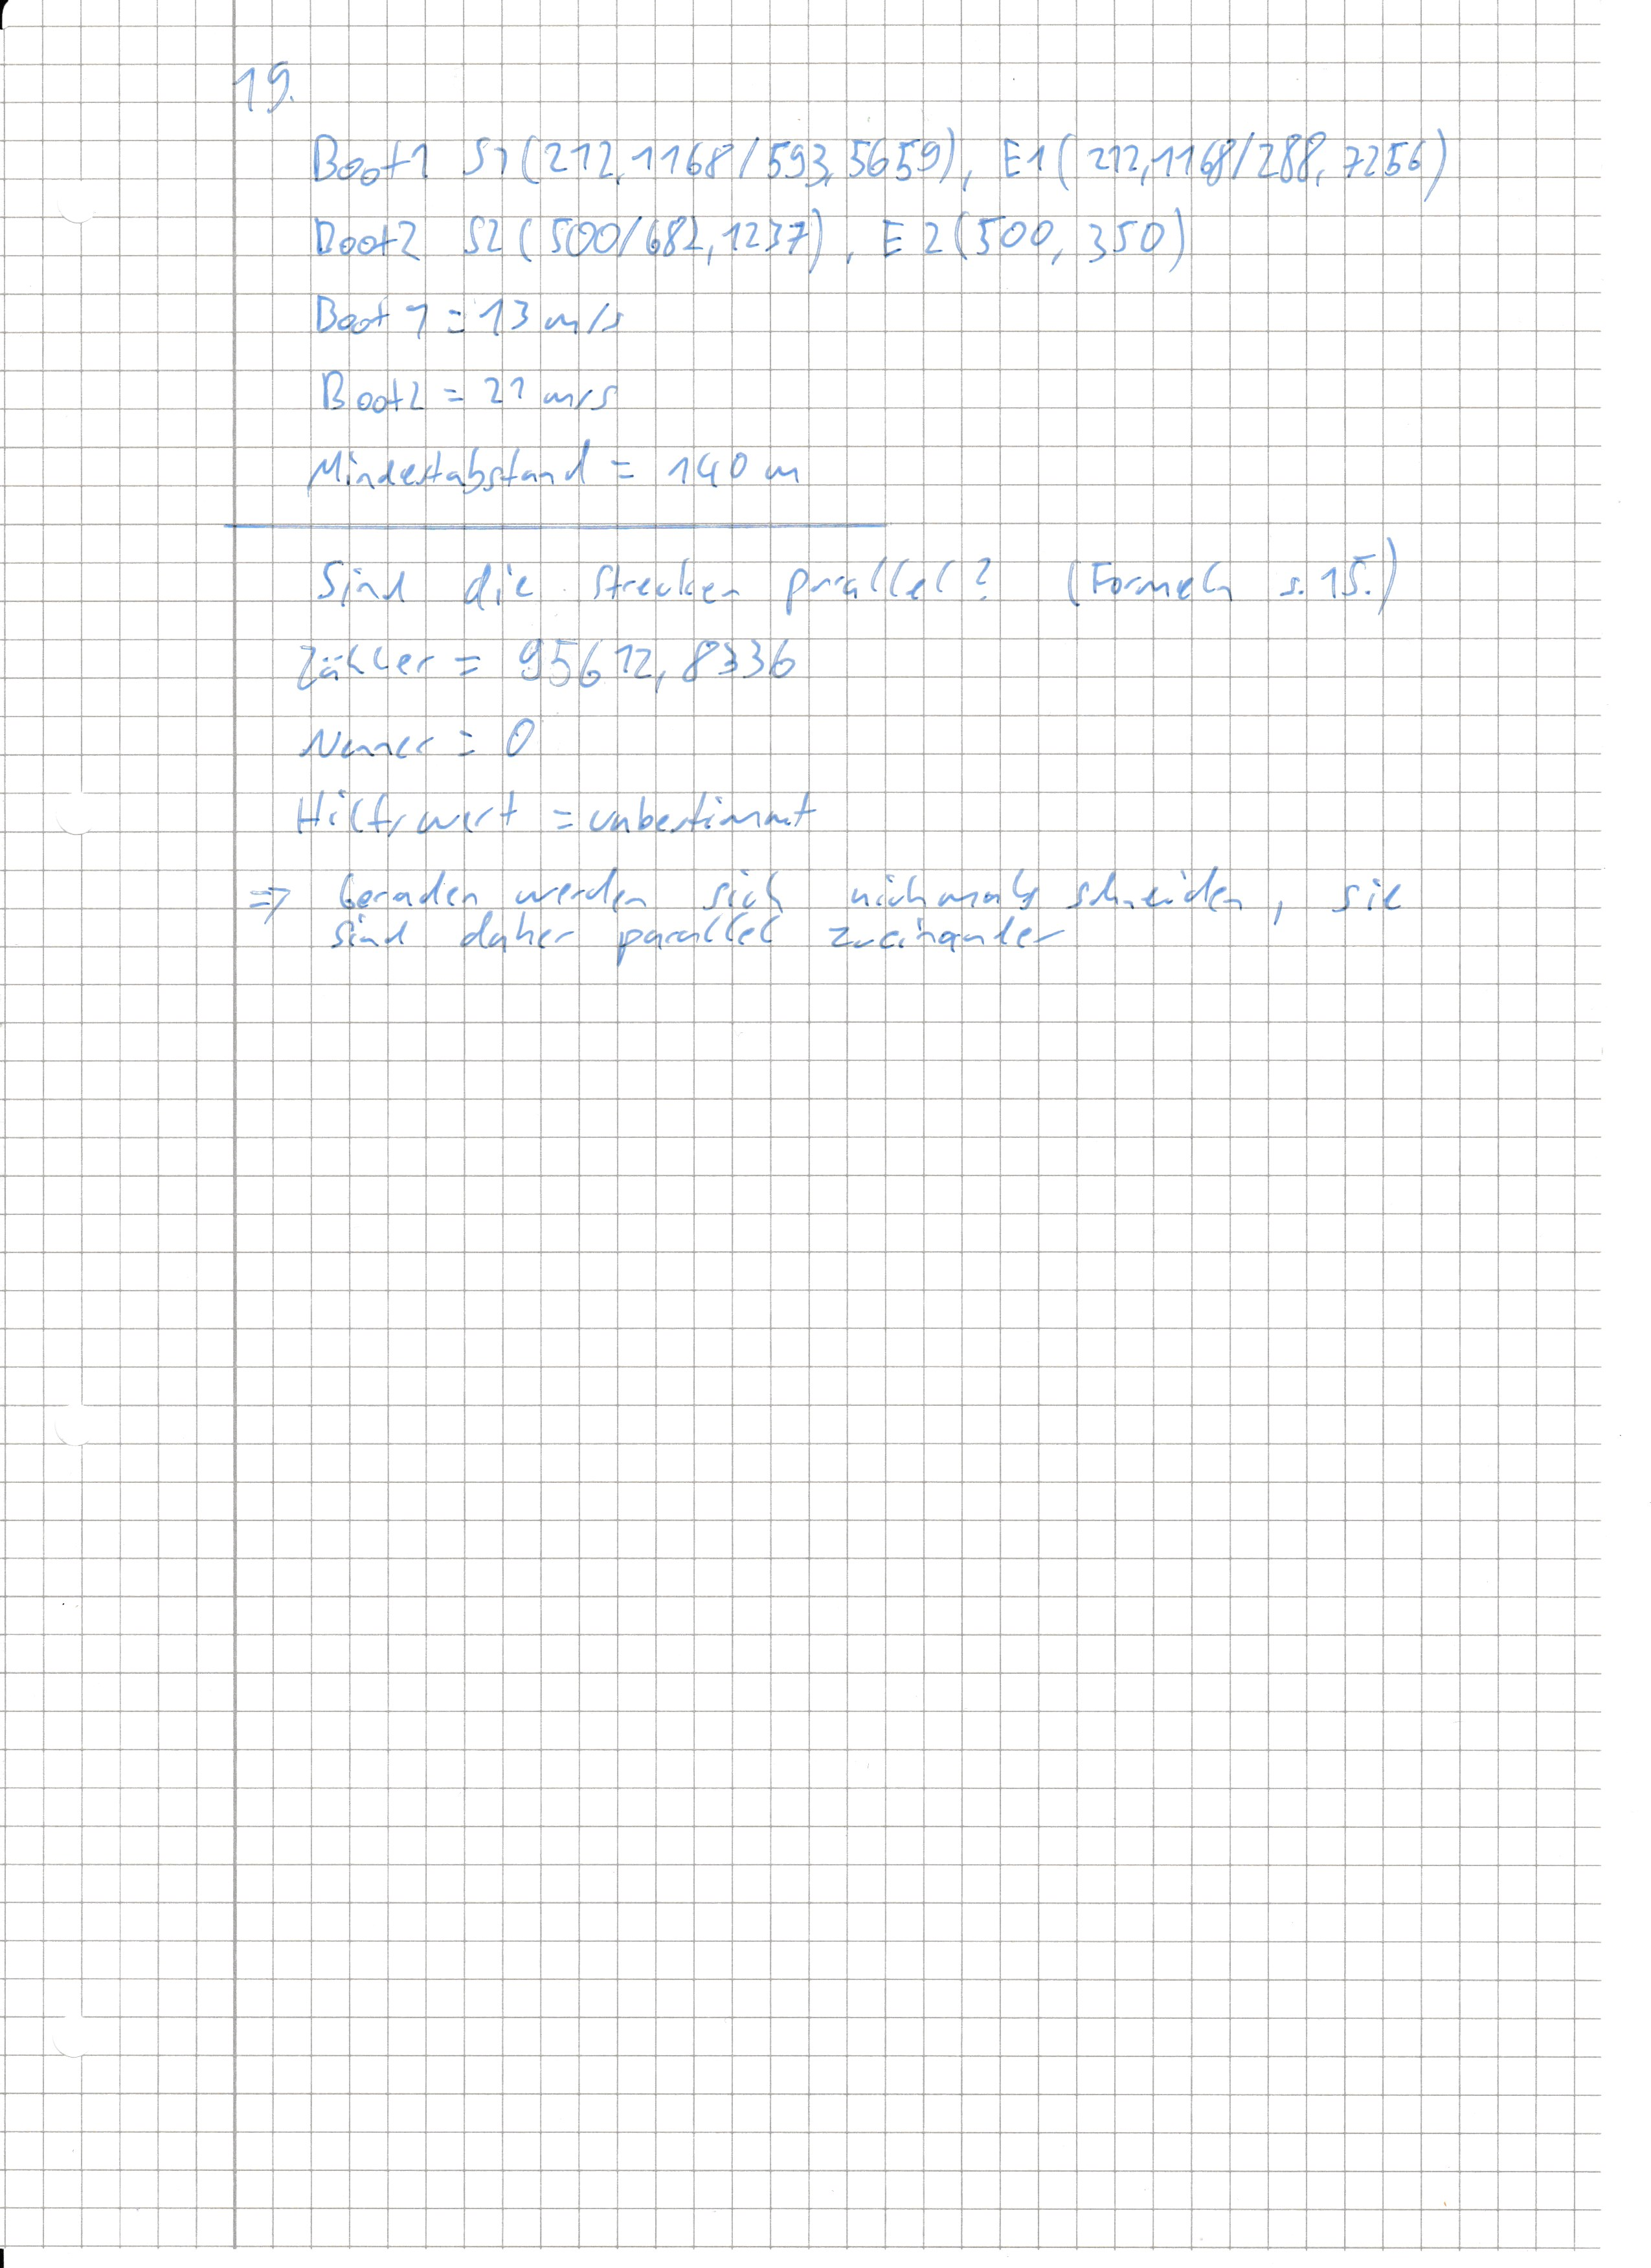 19.
Boot1 S1(212,1168/593,5659), E1(212,1168/288,7256)
Boot2 S2(500/682,1237), E2(500,350)
Boot 1 = 13 m/s
Boot2 = 21 m/s
Mindestabstand = 140 m
Sind die Strecken parallel? (Formeln s. 15.)
Zähler = 95612,8336
Nenner = 0
Hilfswert = unbestimmt
=> Geraden werden sich nichmals schneiden, sie
sind daher parallel zueinander